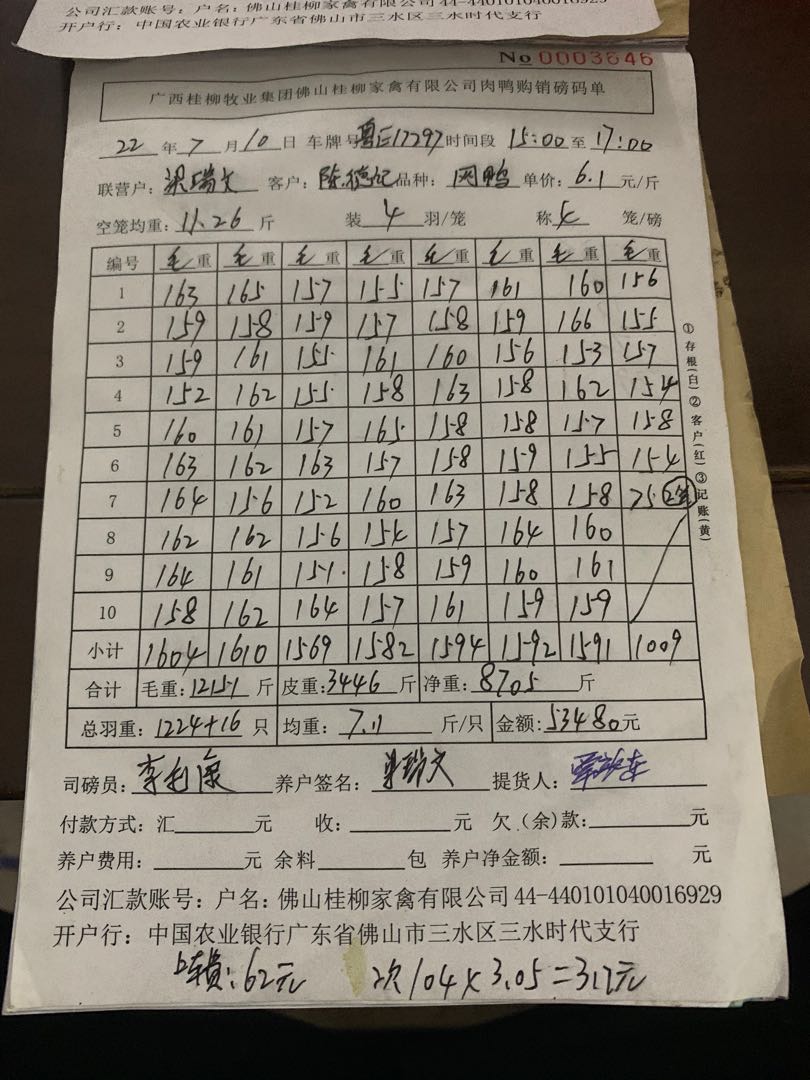 公司汇款账号：户名：佛山桂柳家禽有限公司44-440101040016929
开户行：中国农业银行广东省佛山市三水区三水时代支行
No 0003646
广西桂柳牧业集团佛山桂柳家禽有限公司肉鸭购销磅码单
22 年 7 月 10 日 车牌号 粤E17297 时间段 15:00 至 17:00
联营户：梁瑞文 客户：陈德记 品种：网鸭 单价：6.1 元/斤
空笼均重：11.26 斤 装 4 羽/笼 称 4 笼/磅
编号 毛重 毛重 毛重 毛重 毛重 毛重 毛重 毛重
1 163 165 157 155 157 161 160 156
2 159 158 159 157 158 159 166 155
3 159 161 155 161 160 156 153 157
4 152 162 155 158 163 158 162 154
5 160 161 157 165 158 158 157 158
6 163 162 163 157 158 159 155 154
7 164 156 152 160 163 158 158 75
8 162 162 156 154 157 164 160
9 164 161 151 158 159 160 161
10 158 162 164 157 161 159 159
小计 1604 1610 1569 1582 1594 1592 1591 1009
合计 毛重：12151 斤 皮重：3446 斤 净重：8705 斤
总羽重：1224+16 只 均重：7.11 斤/只 金额：53480元
司磅员：李 养户签名：梁瑞文 提货人：
付款方式：汇 元 收： 元 欠（余）款： 元
养户费用： 元 余料 包 养户净金额： 元
公司汇款账号：户名：佛山桂柳家禽有限公司44-440101040016929
开户行：中国农业银行广东省佛山市三水区三水时代支行
：62元 次104×3.05=317元
①存根(白)②客户(红)③记账(黄)